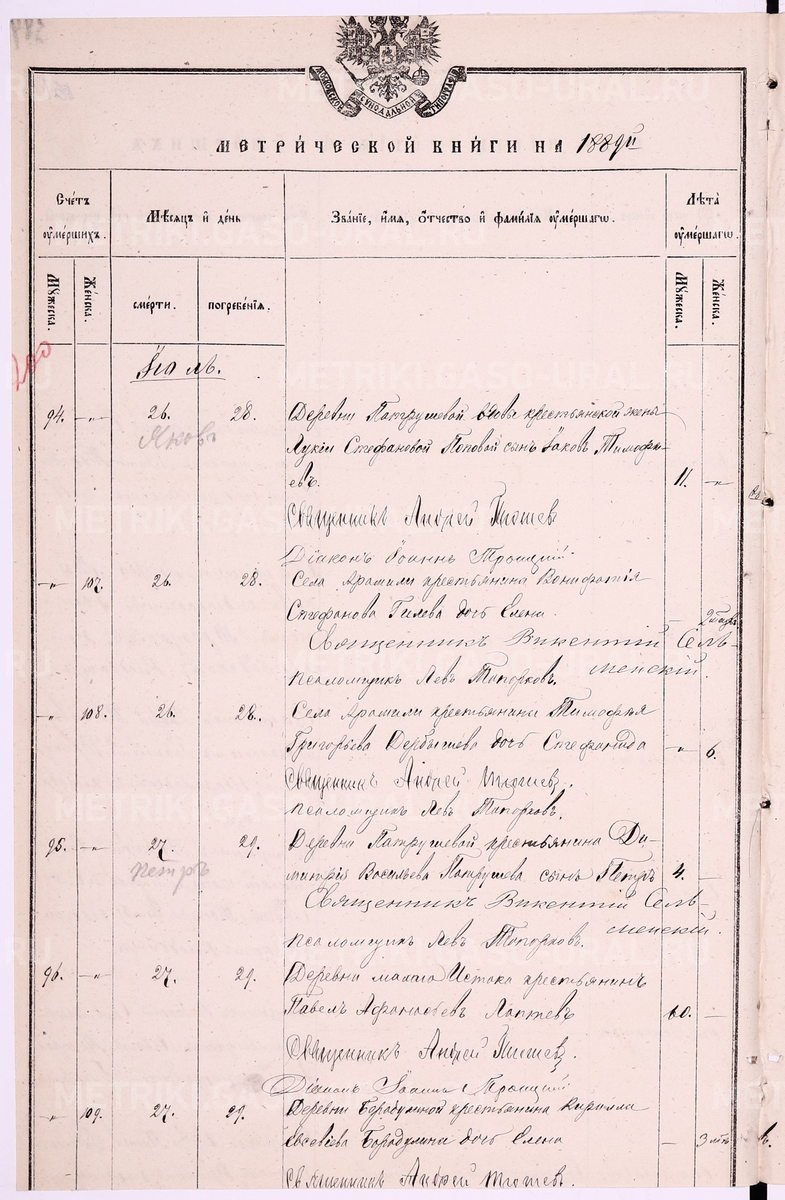 МОСКОВСКОЙ СУНОДАЛЬНОЙ ТИПОГРАФІИ
МЕТРИ́ЧЕСКОЙ КНИ́ГИ НА 1889й
Сче́тъ ᲂу҆ме́ршихъ.
Мѣ́сяцъ и҆ де́нь
Зва́ніе, и҆́мя, ѻ҆́тчество и҆ фами́лїя ᲂу҆ме́ршагѡ.
Лѣ́та ᲂу҆ме́ршагѡ.
Мꙋ́жеска.
Же́нска.
сме́рти.
погребе́нїя.
Мꙋ́жеска.
Же́нска.
Іюль.
94. -"- 26. 28. Деревни Патрушевой вдовы крестьянской жены
Яковъ
Лукіи Стефановой Поповой сынъ Іаковъ Тимофе-
евъ. 11. -"-
Священникъ Андрей
Діаконъ Іоаннъ Троицкій
-"- 107. 26. 28. Села Арамили крестьянина Вонифатія
Стефанова Гилева дочь Елена
Священникъ Викентій Сель-
менскій.
Псаломщикъ Левъ Топорковъ.
-"- 108. 26. 28. Села Арамили крестьянина Тимофея
Григорьева Дербышева дочь Стефанида -"- 6.
Священникъ Андрей
Псаломщикъ Левъ Топорковъ.
95. -"- 27. 29. Деревни Патрушевой крестьянина Ди-
Петръ
митрія Васильева Патрушева сынъ Петръ 4. -
Священникъ Викентій Сель-
менскій.
Псаломщикъ Левъ Топорковъ.
96. -"- 27. 29. Деревни малаго Истока крестьянинъ
Павелъ Афанасьевъ Лаптевъ 60. -
Священникъ Андрей
Діаконъ Іоаннъ Троицкій
-"- 109. 27. 29. Деревни Бородулиной крестьянина Кирилла
Евсевіева Бородулина дочь Елена -
Священникъ Андрей